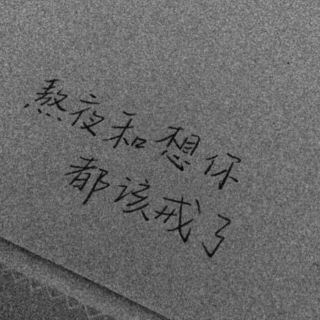 熬夜和想你
都该戒了